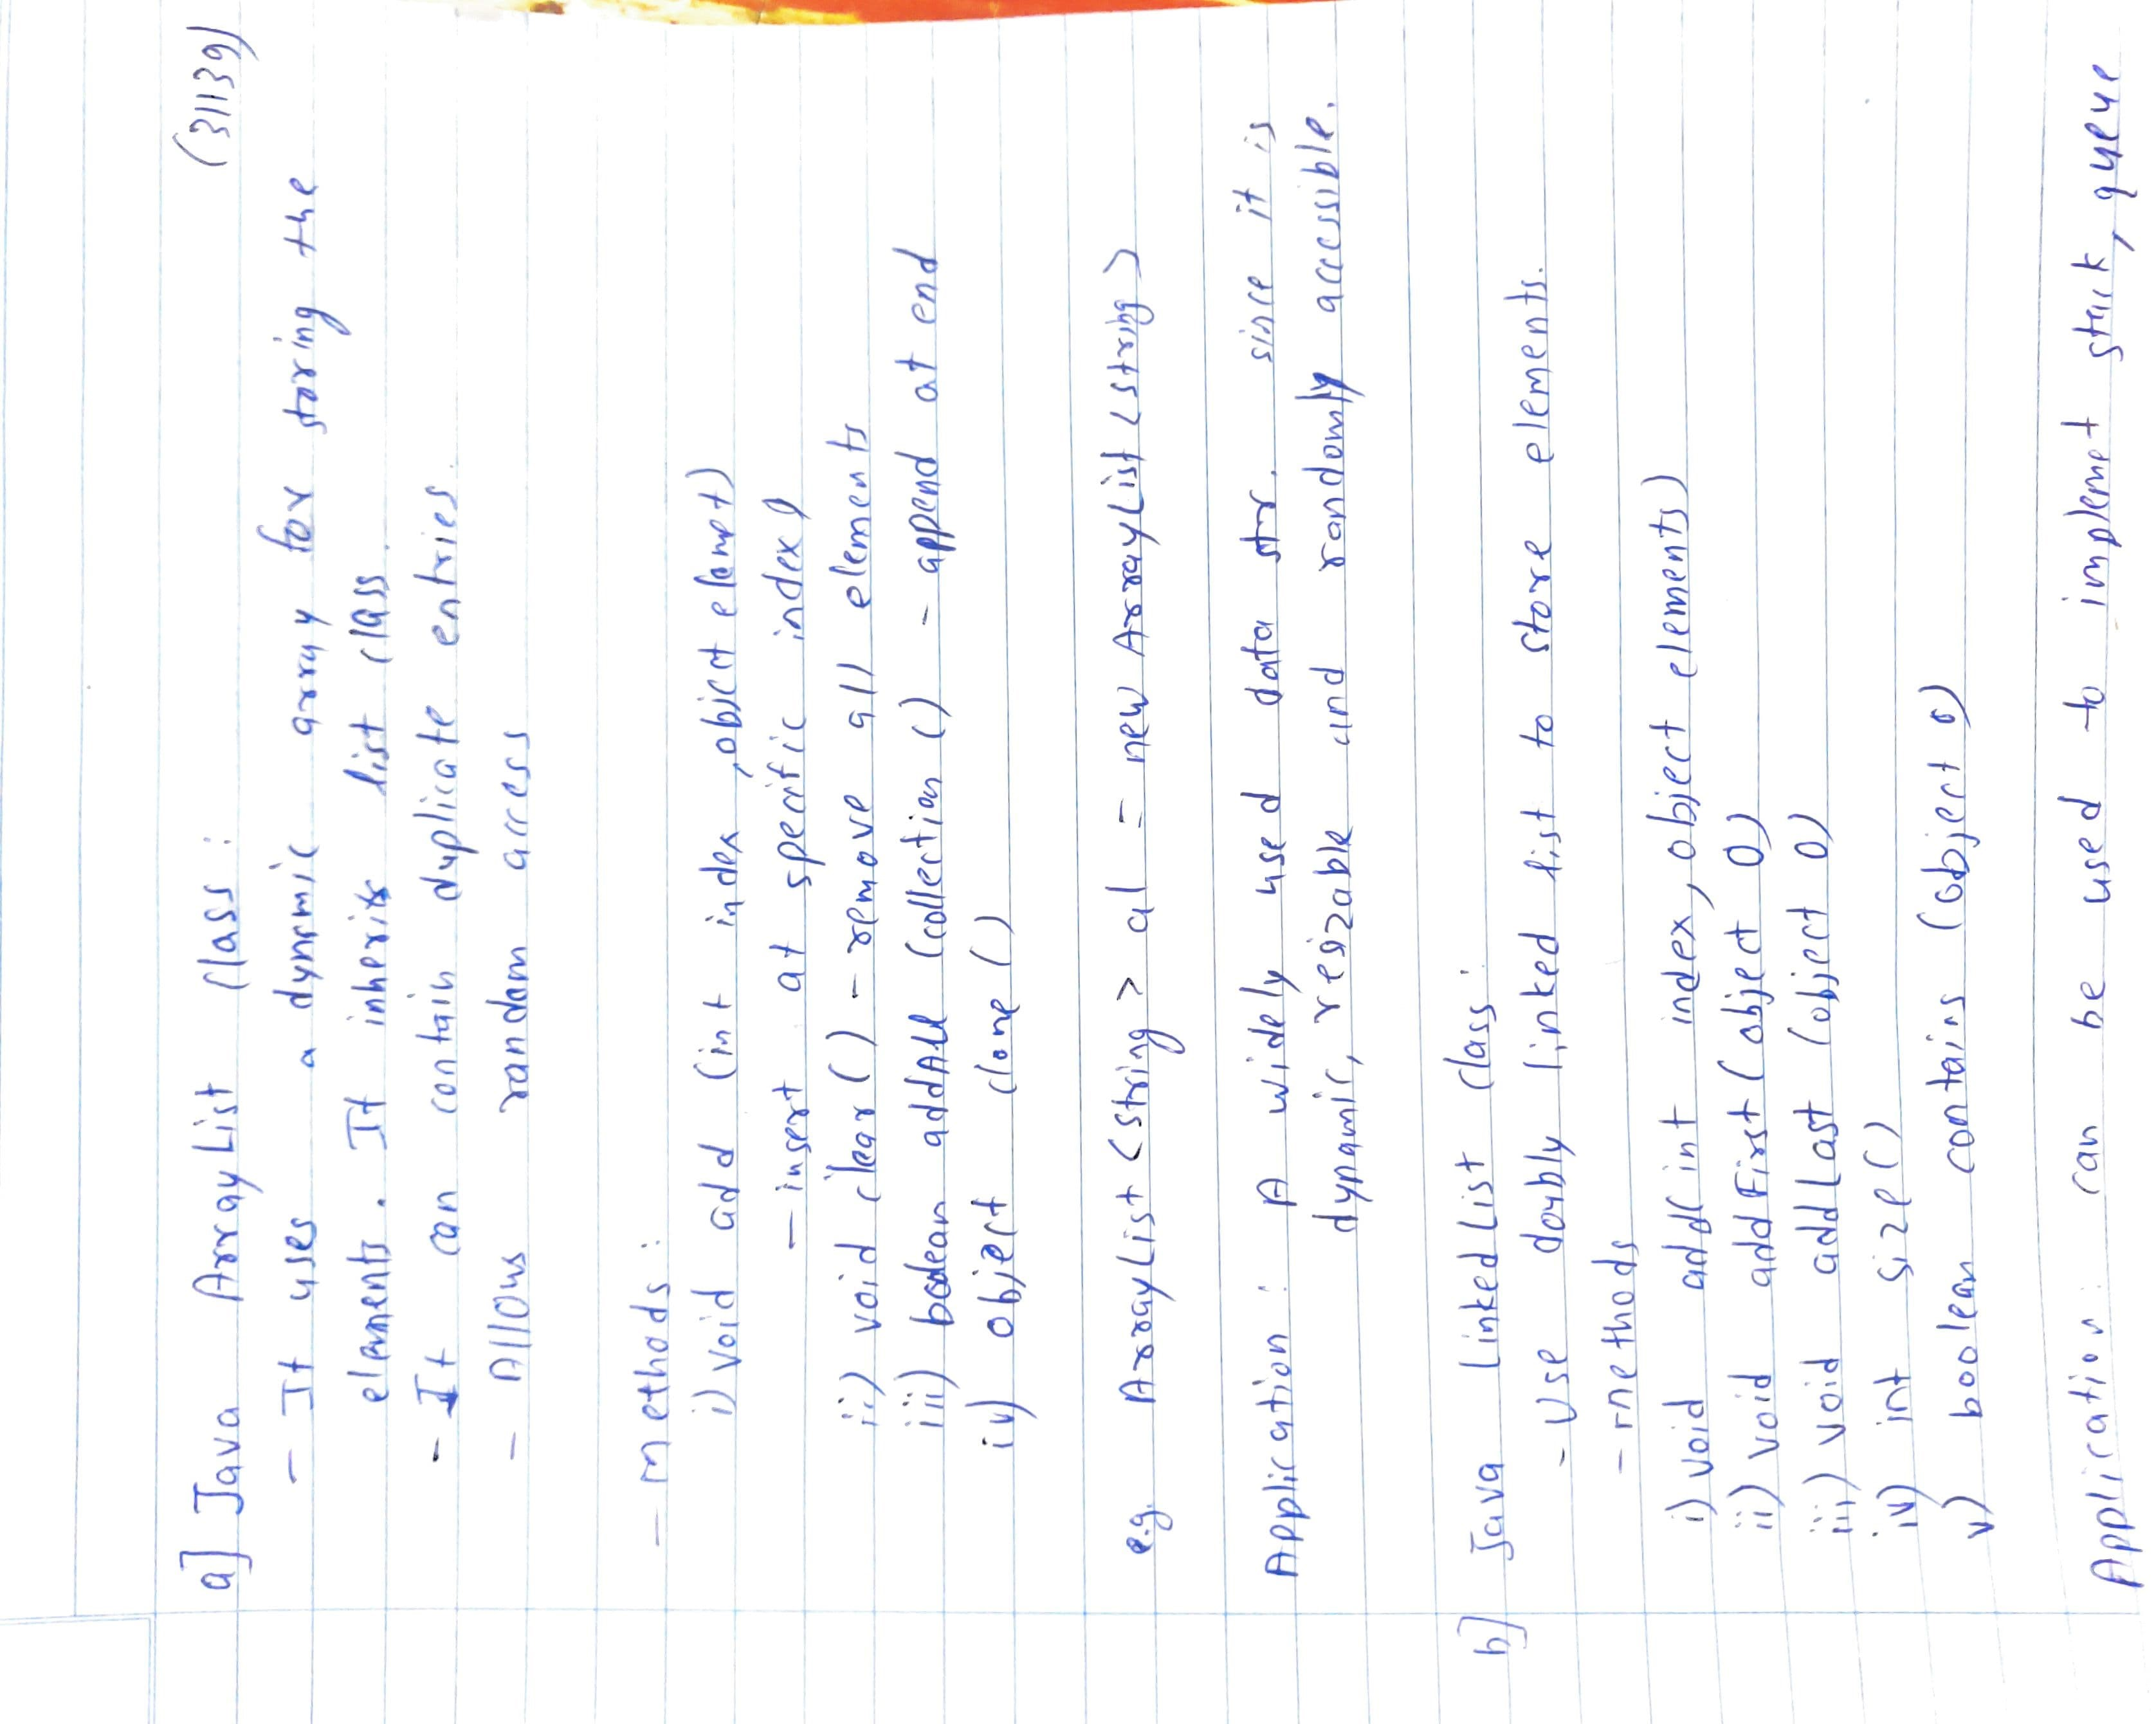 (31139)
a] Java ArrayList class :
- It uses a dynamic array for storing the
elements. It inherits list class.
- It can contain duplicate entries
- Allows random access
- methods :
i) void add (int index, object elemet)
- insert at specific index)
ii) void clear () - remove all elements
iii) boolean addAll (collection c) - append at end
iv) object clone ()
e.g. ArrayList <string> al = new ArrayList <string>
Application : A widely used data str. since it is
dynamic, resizable and randomly accessible.
b] Java linkedList class :
- Use doubly linked list to store elements.
- methods
i) void add( int index, object elements)
ii) void addFirst (object O)
iii) void addLast (object O)
iv) int size ()
v) boolean contains (object o)
Application : can be used to implemet stack, queue